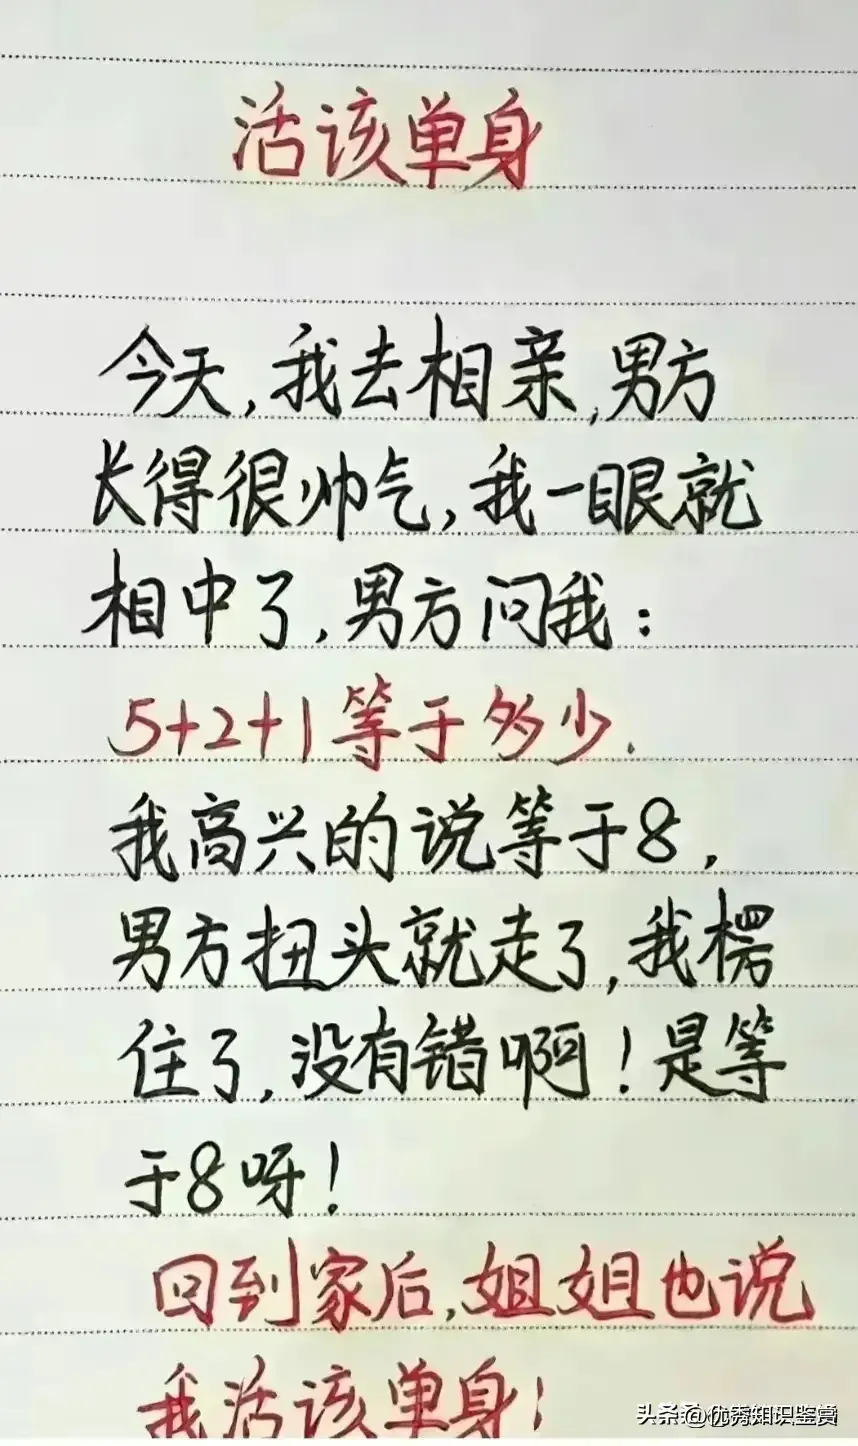 活该单身
今天,我去相亲,男方
长得很帅气,我一眼就
相中了,男方问我:
5+2+1等于多少.
我高兴的说等于8,
男方扭头就走了,我楞
住了,没有错啊!是等
于8呀!
回到家后,姐姐也说
我活该单身!
头条 @优秀知识鉴赏